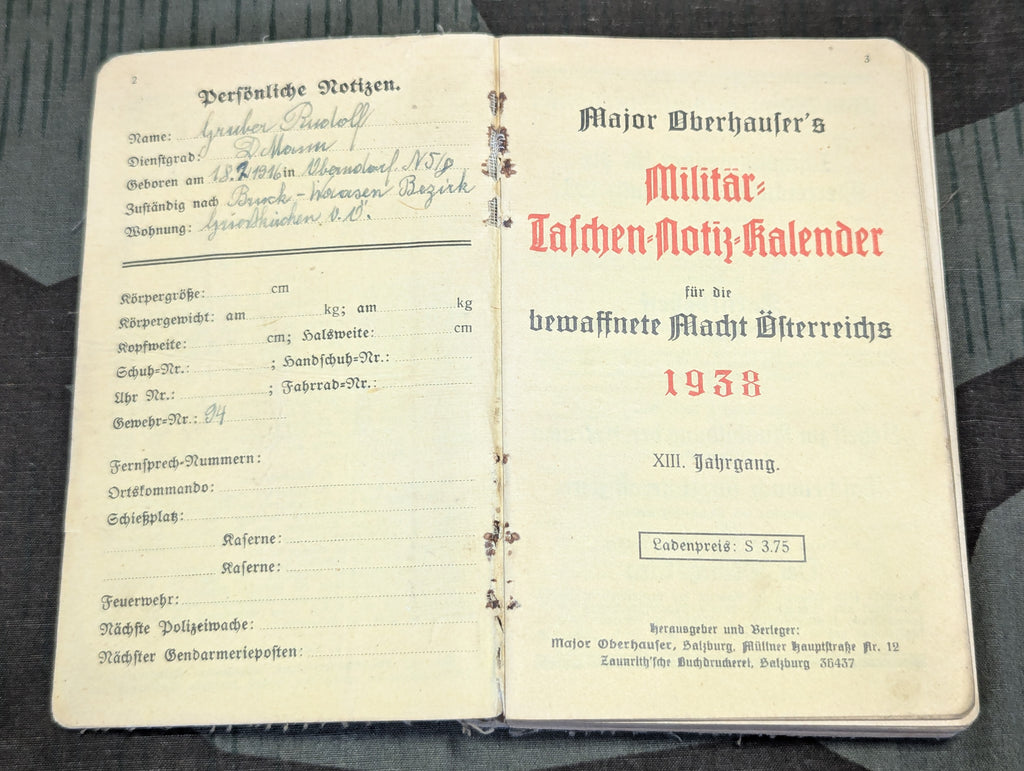 2
Persönliche Notizen.
Name: Gruber Rudolf
Dienstgrad: D. Mann
Geboren am 18.2 1916 in Oberndorf N 5/8
Zuständig nach Bruck-Waasen Bezirk
Wohnung: Grieskirchen O. Ö.
Körpergröße: cm
Körpergewicht: am kg; am kg
Kopfweite: cm; Halsweite: cm
Schuh-Nr.: ; Handschuh-Nr.:
Uhr Nr.: ; Fahrrad-Nr.:
Gewehr-Nr.: 94
Fernsprech-Nummern:
Ortskommando:
Schießplatz:
Kaserne:
Kaserne:
Feuerwehr:
Nächste Polizeiwache:
Nächster Gendarmerieposten:
3
Major Oberhauser's
Militär-
Taschen-Notiz-Kalender
für die
bewaffnete Macht Österreichs
1938
XIII. Jahrgang.
Ladenpreis: S 3.75
Herausgeber und Verleger:
Major Oberhauser, Salzburg, Müllner Hauptstraße Nr. 12
Zaunrith'sche Buchdruckerei, Salzburg 36437